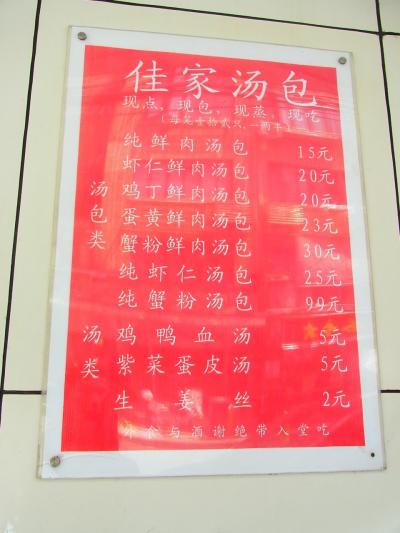 佳家汤包
现点,现包,现蒸,现吃
(每笼壹拾贰只,一两半)
汤包类
纯鲜肉汤包 15元
虾仁鲜肉汤包 20元
鸡丁鲜肉汤包 20元
蛋黄鲜肉汤包 23元
蟹粉鲜肉汤包 30元
纯虾仁汤包 25元
纯蟹粉汤包 99元
汤类
鸡鸭血汤 5元
紫菜蛋皮汤 5元
生姜丝 2元
外食与酒谢绝带入堂吃